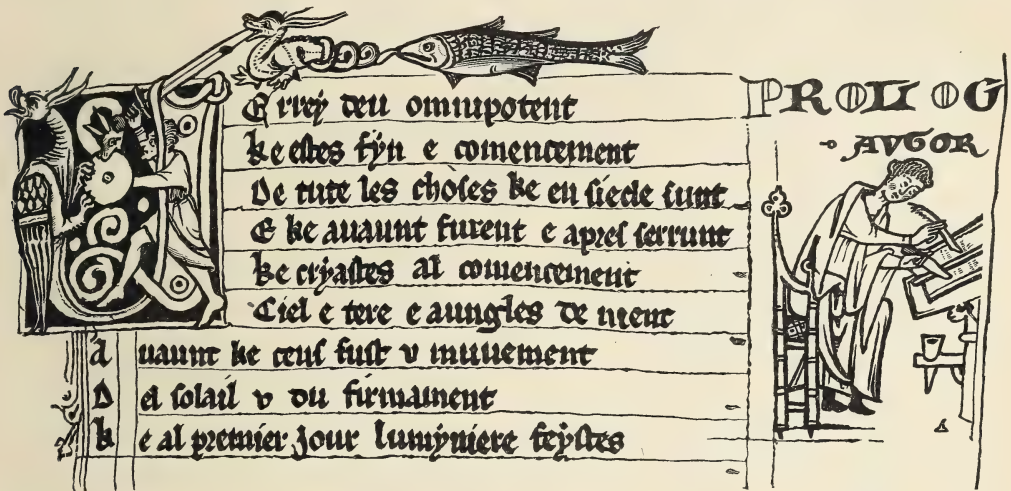 E rrey deu omnipotent
ke estes fyn e comencement
De tute les choses ke en siecle sunt
E ke avaunt furent e apres serrunt
ke cryastes al comencement
Ciel e tere e aungles de nient
A uaunt ke ceus fust v muuement
D el solail v du firmament
k e al premier jour lumyniere feystes
PROLOG
AVGOR